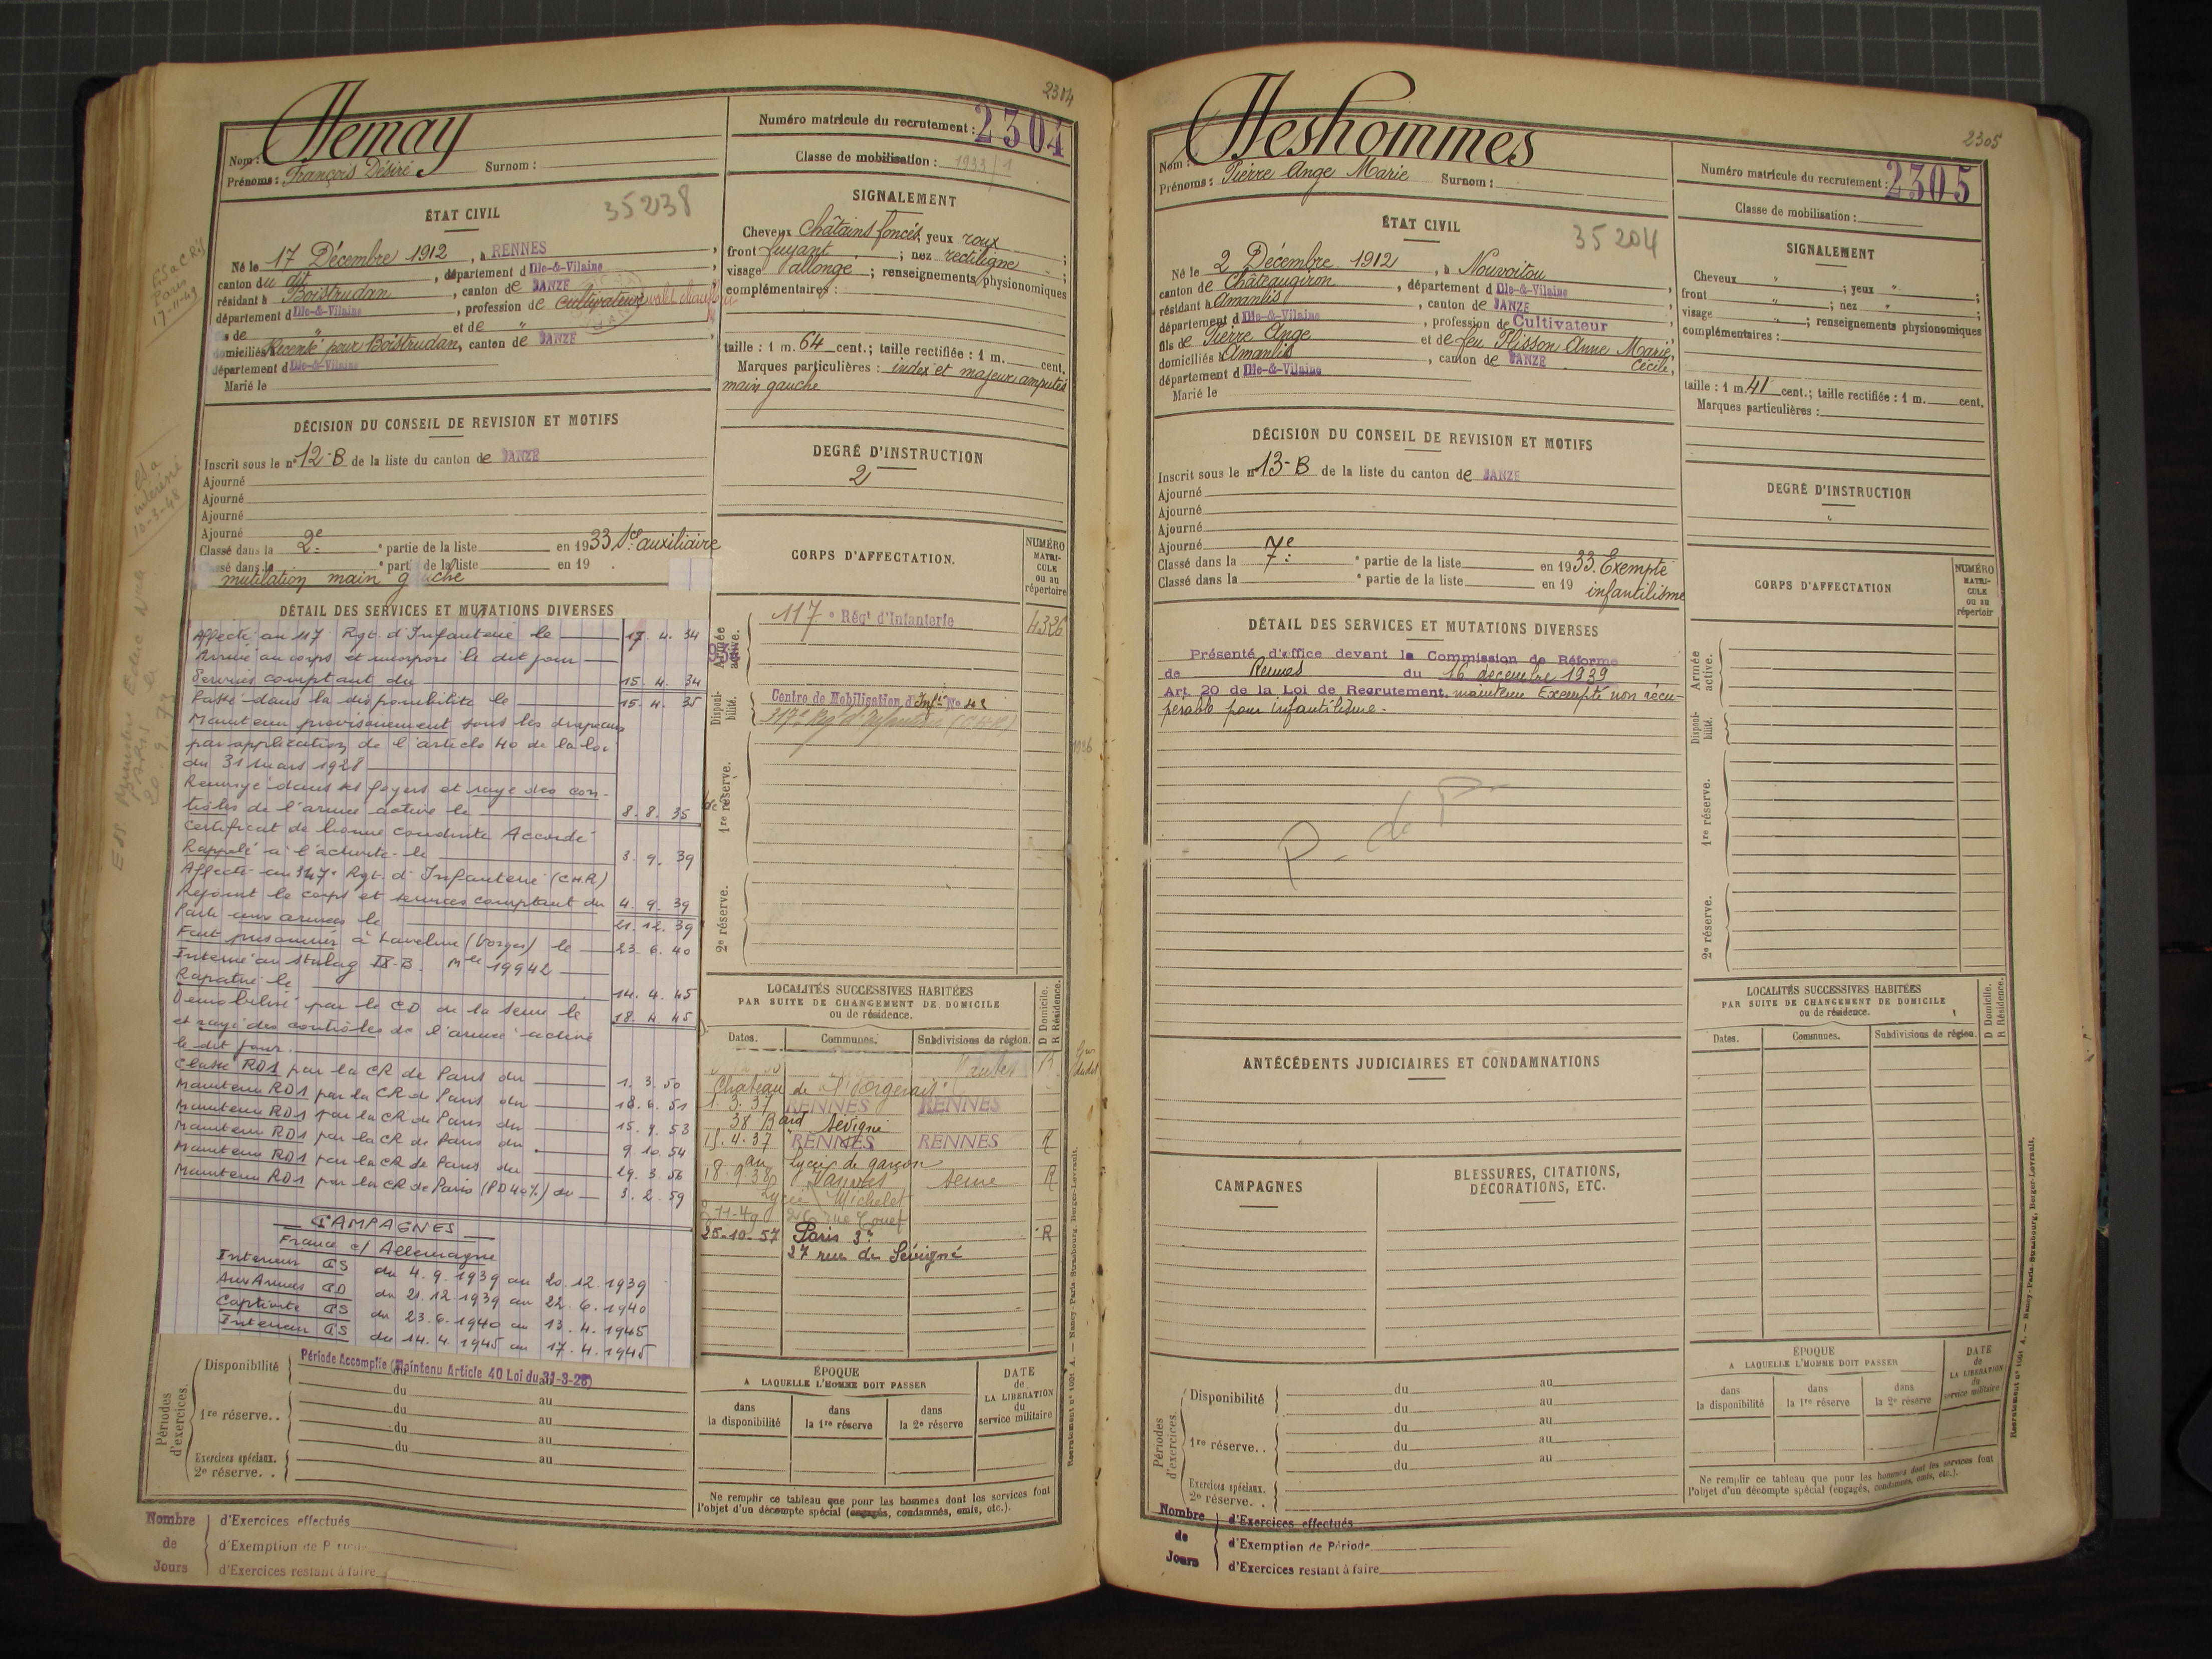 2304
Nom: Hemay
Prénoms: François Désiré Surnom:
Numéro matricule du recrutement: 2304
Classe de mobilisation: 1933/1
ÉTAT CIVIL
35238
Né le 17 Décembre 1912, à RENNES
canton du dit, département d'Ille-&-Vilaine
résidant à Boistrudan, canton de JANZE
département d'Ille-&-Vilaine, profession de cultivateur valet chauffeur
de " et de "
domiciliés Recensé pour Boistrudan, canton de JANZE
département d'Ille-&-Vilaine
Marié le
SIGNALEMENT
Cheveux châtains foncés, yeux roux
front fuyant; nez rectiligne
visage allongé; renseignements physionomiques
complémentaires:
taille: 1 m. 64 cent.; taille rectifiée: 1 m. cent.
Marques particulières: index et majeur amputés
main gauche
DÉCISION DU CONSEIL DE REVISION ET MOTIFS
Inscrit sous le n° 12-B de la liste du canton de JANZE
Ajourné
Ajourné
Ajourné
Ajourné
Classé dans la 2e partie de la liste en 1933 Sce auxiliaire
Classé dans la partie de la liste en 19
mutilation main gauche
DEGRÉ D'INSTRUCTION
2
DÉTAIL DES SERVICES ET MUTATIONS DIVERSES
Affecté au 117 Rgt. d'Infanterie le 17. 4. 34
Arrivé au corps et incorporé le dit jour
Services comptant du 15. 4. 34
Passé dans la disponibilité le 15. 4. 35
Maintenu provisoirement sous les drapeaux
par application de l'article 40 de la loi
du 31 mars 1928
Renvoyé dans ses foyers et rayé des con-
trôles de l'armée active le 8. 8. 35
Certificat de bonne conduite Accordé
Rappelé à l'activité le 3. 9. 39
Affecté au 117e Rgt. d'Infanterie (CHR)
Rejoint le corps et services comptant du 4. 9. 39
Parti aux armées le 21. 12. 39
Fait prisonnier à Laveline (Vosges) le 23. 6. 40
Interné au Stalag IX-B. Mle 19942
Rapatrié le 14. 4. 45
Démobilisé par le CD de la Seine le 18. 4. 45
et rayé des contrôles de l'armée active
le dit jour.
Classé RD1 par la CR de Paris du 1. 3. 50
Maintenu RD1 par la CR de Paris du 18. 6. 51
Maintenu RD1 par la CR de Paris du 15. 9. 53
Maintenu RD1 par la CR de Paris du 9. 10. 54
Maintenu RD1 par la CR de Paris du 29. 3. 56
Maintenu RD1 par la CR de Paris (PD 40%) du 3. 2. 59
CAMPAGNES
France c/ Allemagne
Intérieur CS du 4. 9. 1939 au 20. 12. 1939
Aux Armées CD du 21. 12. 1939 au 22. 6. 1940
Captivité CS du 23. 6. 1940 au 13. 4. 1945
Intérieur CS du 14. 4. 1945 au 17. 4. 1945
CORPS D'AFFECTATION.
NUMÉRO MATRICULE ou au répertoire
Armée active.
117e Régt d'Infanterie 4326
Disponibilité.
Centre de Mobilisation d'Infie No 42
117e Rgt d'Infanterie (CHR)
1re réserve.
2e réserve.
LOCALITÉS SUCCESSIVES HABITÉES
PAR SUITE DE CHANGEMENT DE DOMICILE
ou de résidence.
D Domicile. R Résidence.
Dates. Communes. Subdivisions de région.
Chateau de
1. 3. 37 RENNES RENNES
38 Bard Sévigné
15. 4. 37 RENNES RENNES R
au Lycée de garçons
18. 9. 38 Vanves Seine R
Lycée Michelet
25-10-57 Paris 3e R
27 rue de Sévigné
Périodes d'exercices.
Disponibilité
Période Accomplie (Maintenu Article 40 Loi du 31-3-28)
du au
1re réserve..
du au
du au
du au
Exercices spéciaux.
2e réserve..
ÉPOQUE
A LAQUELLE L'HOMME DOIT PASSER
dans la disponibilité
dans la 1re réserve
dans la 2e réserve
DATE de LA LIBÉRATION du service militaire
Ne remplir ce tableau que pour les hommes dont les services font
l'objet d'un décompte spécial (engagés, condamnés, omis, etc.).
Nombre de Jours
d'Exercices effectués
d'Exemption de Période
d'Exercices restant à faire
Recrutement n° 1001 A. — Nancy-Paris-Strasbourg, Berger-Levrault.
2305
Nom: Heshommes
Prénoms: Pierre Ange Marie Surnom:
Numéro matricule du recrutement: 2305
Classe de mobilisation:
ÉTAT CIVIL
35204
Né le 2 Décembre 1912, à Nouvoitou
canton de Châteaugiron, département d'Ille-&-Vilaine
résidant à Amanlis, canton de JANZE
département d'Ille-&-Vilaine, profession de Cultivateur
fils de Pierre Ange et de feu Plisson Anne Marie
Cécile,
domiciliés à Amanlis, canton de JANZE
département d'Ille-&-Vilaine
Marié le
SIGNALEMENT
Cheveux "; yeux "
front "; nez "
visage "; renseignements physionomiques
complémentaires:
taille: 1 m. 41 cent.; taille rectifiée: 1 m. cent.
Marques particulières:
DÉCISION DU CONSEIL DE REVISION ET MOTIFS
Inscrit sous le n° 13-B de la liste du canton de JANZE
Ajourné
Ajourné
Ajourné
Ajourné
Classé dans la 7e partie de la liste en 1933 Exempté
Classé dans la partie de la liste en 19 infantilisme
DEGRÉ D'INSTRUCTION
DÉTAIL DES SERVICES ET MUTATIONS DIVERSES
Présenté d'office devant la Commission de Réforme
de Rennes du 16 décembre 1939
Art. 20 de la Loi de Recrutement. maintenu Exempté non récu-
pérable pour infantilisme.
P. de P.
CORPS D'AFFECTATION
NUMÉRO MATRICULE ou au répertoire
Armée active.
Disponibilité.
1re réserve.
2e réserve.
ANTÉCÉDENTS JUDICIAIRES ET CONDAMNATIONS
CAMPAGNES
BLESSURES, CITATIONS,
DÉCORATIONS, ETC.
LOCALITÉS SUCCESSIVES HABITÉES
PAR SUITE DE CHANGEMENT DE DOMICILE
ou de résidence.
D Domicile. R Résidence.
Dates. Communes. Subdivisions de région.
Périodes d'exercices.
Disponibilité
du au
du au
1re réserve..
du au
du au
du au
Exercices spéciaux.
2e réserve..
ÉPOQUE
A LAQUELLE L'HOMME DOIT PASSER
dans la disponibilité
dans la 1re réserve
dans la 2e réserve
DATE de LA LIBÉRATION du service militaire
Ne remplir ce tableau que pour les hommes dont les services font
l'objet d'un décompte spécial (engagés, condamnés, omis, etc.).
Nombre de Jours
d'Exercices effectués
d'Exemption de Période
d'Exercices restant à faire
Recrutement n° 1001 A. — Nancy-Paris-Strasbourg, Berger-Levrault.